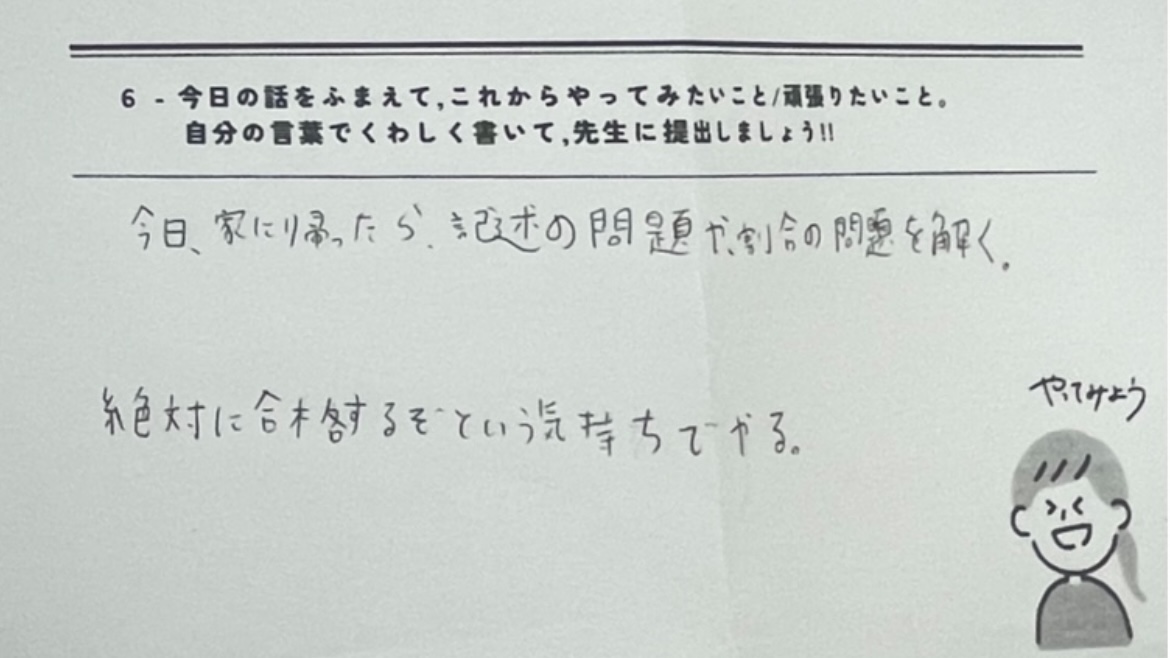 6 - 今日の話をふまえて,これからやってみたいこと/頑張りたいこと。
自分の言葉でくわしく書いて,先生に提出しましょう!!
今日、家に帰ったら、記述の問題や、割合の問題を解く。
絶対に合格するぞという気持ちでやる。
やってみよう